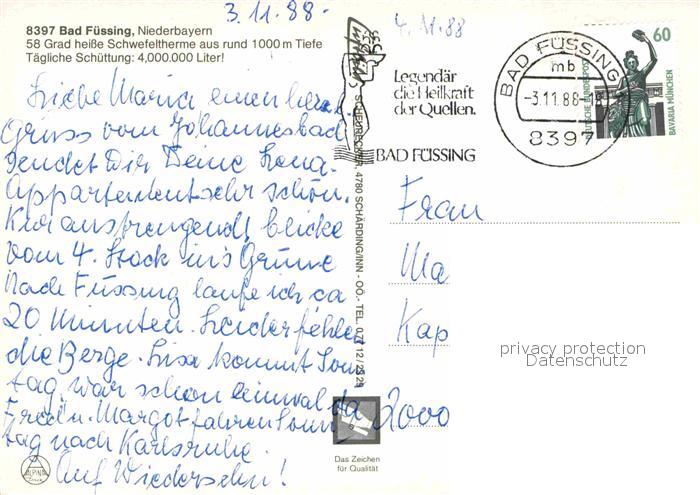 3.11.88-
4.11.88
8397 Bad Füssing, Niederbayern
58 Grad heiße Schwefeltherme aus rund 1000 m Tiefe
Tägliche Schüttung: 4,000.000 Liter!
Liebe Maria einen herzl
Gruss vom Johannesbad
sendet Dir Deine
Appartement sehr schön.
Kur anstrengend, blicke
vom 4. Stock ins Grüne
Nach Füssing laufe ich ca
20 Minuten. Leider fehlen
die Berge. Lisa kommt Sonn
tag, war schon einmal da
Fred u. Margot fahren Sonn
tag nach Karlsruhe.
Auf Wiedersehn!
ALPINA
4780 SCHÄRDING/INN - OÖ.- TEL. 077 12/25 29
Das Zeichen
für Qualität
Legendär
die Heilkraft
der Quellen.
BAD FÜSSING
BAD FÜSSING
mb
-3.11.88-18
8397
60
DEUTSCHE BUNDESPOST
BAVARIA MÜNCHEN
Frau
Ma
Kap
2000
privacy protection
Datenschutz